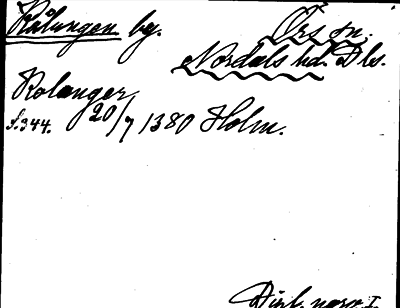 Rålungen by. Örs sn.
Nordals hd. Dls.
Rolanger
s. 344. 20/7 1380 Holm.
Dipl. norv. I